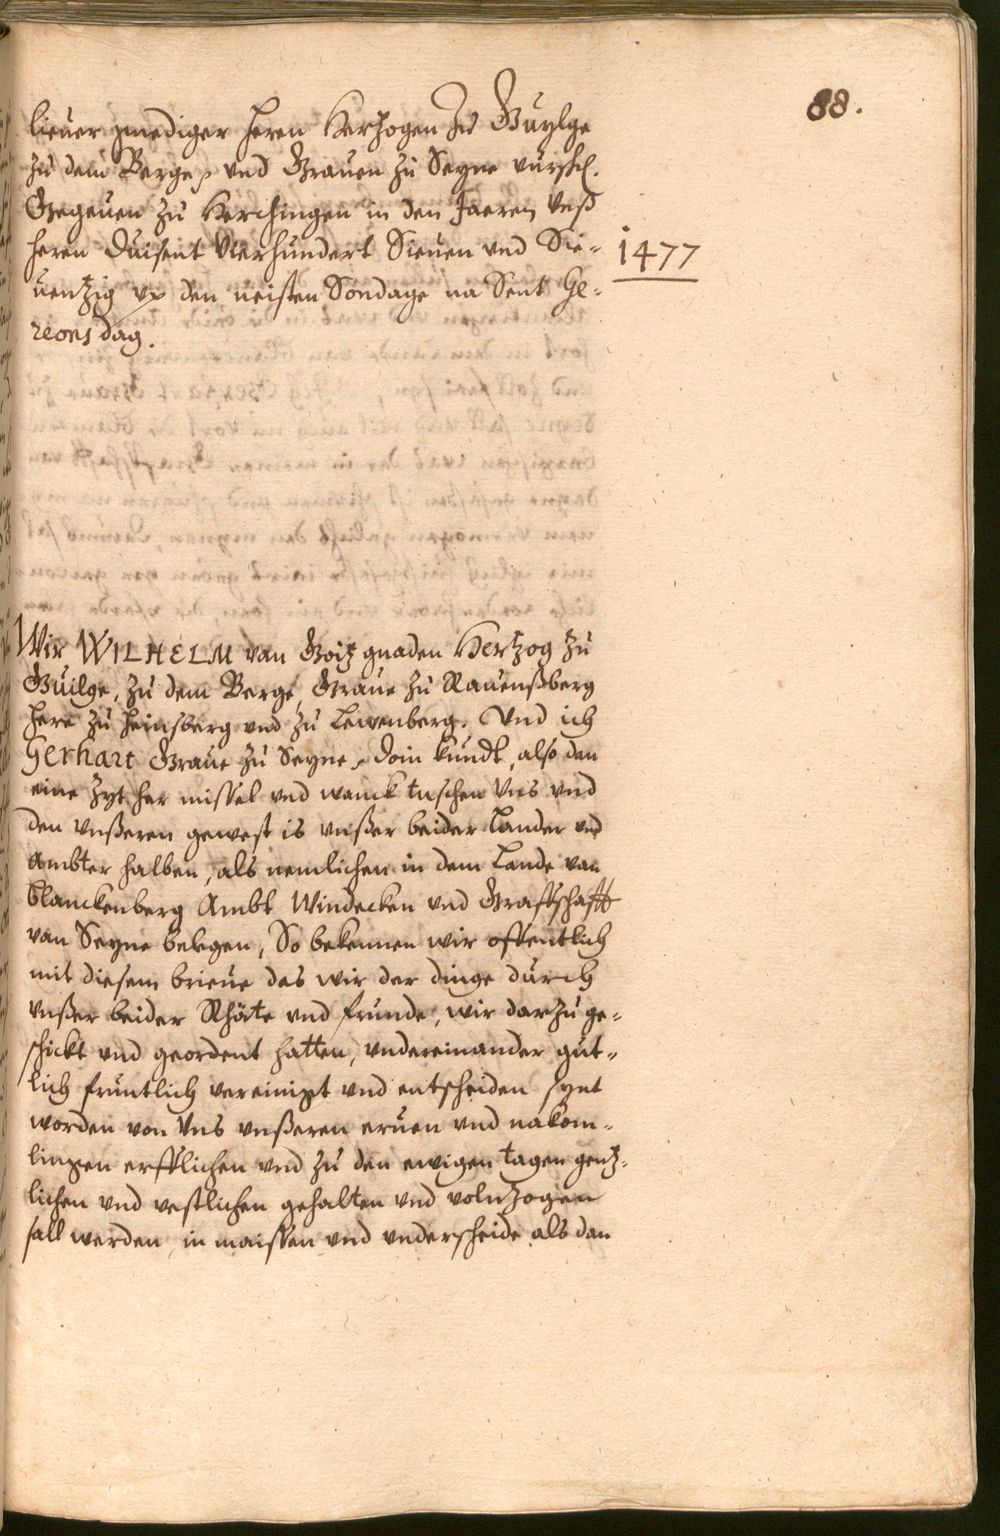 88.
lieuer gnediger heren Hertzogen zu Guylge
zu dem Berge, vnd Grauen zu Seyne vurschr.
Gegeuen zu Herchingen in den Jaeren vnß
heren Duisent Vierhundert Sieuen vnd Sie-
1477
uentzig vp den neisten Sondage na Sent Ge-
reons dag.
Wir WILHELM van Goitz gnaden Hertzog zu
Guilge, zu dem Berge, Graue zu Rauenßberg
here zu Heinsberg vnd zu Lewenberg. Vnd ich
Gerhart Graue zu Seyne, doin kundt, also dan
eine zyt her missel vnd wanck tuschen Vns vnd
den vnßeren gewest is vnßer beider Lander vnd
Ambter halben, als nemlichen in dem Lande van
Blanckenberg Ambt Windecken vnd Graffschafft
van Seyne belegen, So bekennen wir offentlich
mit diesem brieue das wir der dinge durch
vnßer beider Rhäte vnd frunde, wir darzu ge-
schickt vnd geordent hatten, vndereinander gut-
lich fruntlich vereiniget vnd entscheiden synt
worden von Vns vnßeren eruen vnd nakom-
lingen erfflichen vnd zu den ewigen tagen gentz-
lichen vnd vestlichen gehalten vnd volnzogen
sall werden, in maissen vnd vnderscheide als dan